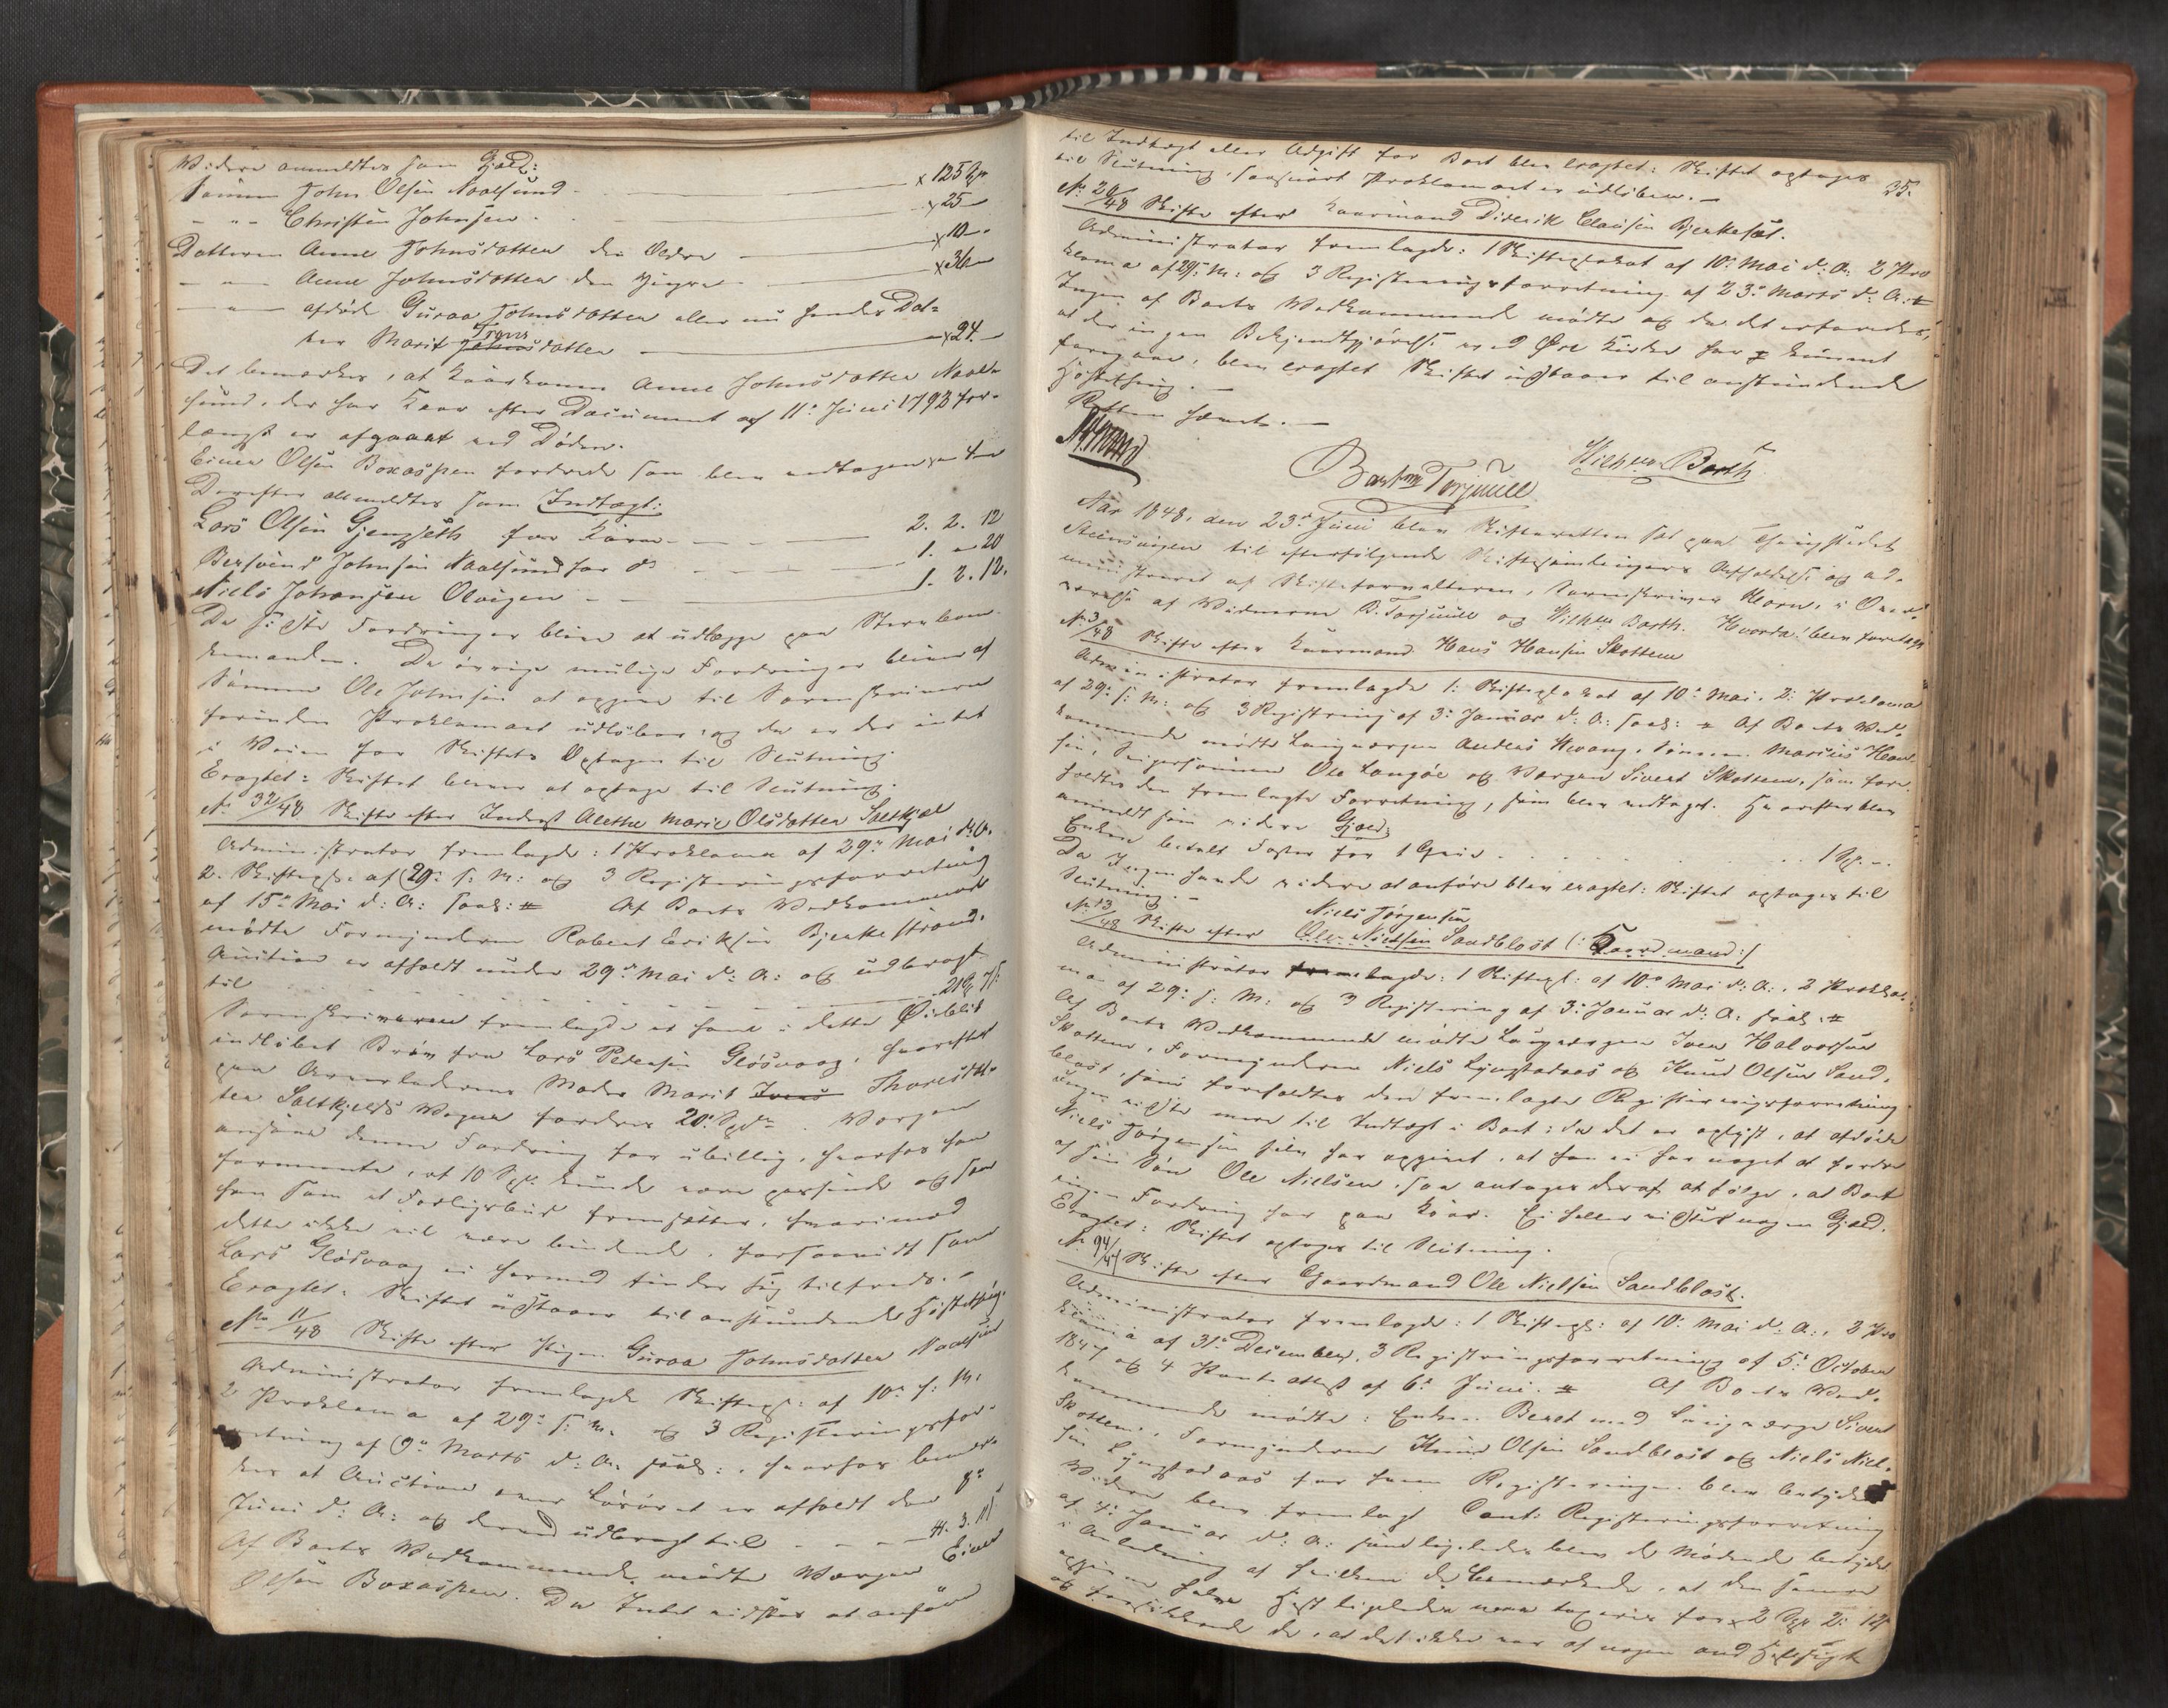 Videre anmeldtes som Gjæld:
Sønnen John Olsen Naalsund x 125 Spd
- " - Christen Johnsen x 25 -
Datteren Anne Johnsdatter den Ældre x 10 -
- " - Anne Johnsdatter den Yngre x 36 -
- " - afdøde Guroa Johnsdatter eller nu hendes Dat-
ter Marit Johnsdatter Trons x 24 -
Det bemærkes, at Kaarkonen Anne Johnsdatter Naal-
sund, der har Kaar efter Document af 11te Juni 1793 for-
længst er afgaaet ved Døden.
Einer Olsen Boxaspen fordrede som blev vedtagen
Derefter anmeldtes som Indtægt:
Lars Olsen Gjengseth for Korn 2. 2. 12
Bersvend Johnsen Naalsund for do 1. " 20
Niels Johansen Olvigen 1. 2. 12.
De sidste Fordringer blive at udlægge paa Stervbom-
kemanden. De øvrige mulige Fordringer bliver af
Sønnen Ole Johnsen at opgive til Sorenskriveren
forinden Proklamaet udløber, og da er der intet
i Veien for Skiftets Optagen til Slutning.
Eragtet: Skiftet bliver at optage til Slutning.
No 32/48 Skifte efter Inderst Alethe Marie Olsdatter Saltkjel
Administrator fremlagde: 1 Proklama af 29de Mai d: A.
2. Skiftepl. af 29de s: M: og 3 Registeringsforretning
af 15de Mai d: A: saal: # Af Boets Vedkommende
mødte Formynderen Robert Eriksen Bjerkestrand.
Auction er afholdt under 29de Mai d: A: og udbragt
til
Sorenskriveren fremlagde et ham i dette Øieblik
indløbet Brev fra Lars Pedersen Gløsvaag, hvorefter
paa Arveladerens Moder Marit Thoresdat-
ter Saltkjelds Vegne fordres 20 Spd. Værgen
ansaae denne Fordring for ubillig, hvorfor han
formente, at 10 Spd. kunde være passende og som
han som et Forligsbud fremsætter, hvorimod
dette ikke vil være bindende, forsaavidt som
Lars Gløsvaag ei hermed finder sig tilfreds. -
Eragtet: Skiftet udstaaer til anstundende Høstething.
No 11/48 Skifte efter Pigen Guroa Johnsdatter Naalsund
Administrator fremlagde Skiftepl: af 10de f: M.
2 Proklama af 29de s: M. og 3 Registeringsfor-
retning af 9de Marts d: A: saal:, hvorhos bemær-
kes at Auction over Løsøret er afholdt den 8de
Juni d: A: og derved udbragt til 44. 3. 11
Af Boets Vedkommende mødte Værgen Einer
Olsen Boxaspen. Da Intet vidstes at anføre
35.
til Indtægt eller Udgift for Boet blev eragtet: Skiftet optages
til Slutning, saasnart Proklamaet er udløben. -
No 20/48 Skifte efter Kaarmand Diderik Clausen Bjerkesæt.
Administrator fremlagde: 1 Skifteplakat af 10de Mai d: A: 2 Pro
klama af 29de s: M: og 3 Registeringsforretning af 23de Marts d: A: #
Ingen af Boets Vedkommende mødte og da det erfaredes,
at der ingen Bekjendtgjørelse ved Øre Kirke har kunnet
foregaae, blev eragtet Skiftet udstaaer til anstundende
Høstething. -
Retten hævet. -
Barthm Torjuull Wilhelm Barth.
Aar 1848, den 23de Juni blev Skifteretten sat paa Thingstedet
til efterfølgende Skiftesamlingers Afholdelse og ad-
ministreret af Skifteforvalteren, Sorenskriver Klow, i Over-
værelse af Vidnerne B. Torjuull og Wilhelm Barth. Hvorda blev foretagen
No 3/48 Skifte efter Kaarmand Hans Hansen Skottem
Administrator fremlagde 1: Skifteplakat af 10de Mai, 2: Proklama
af 29de s: M: og 3 Registering af 3de Januar d: A: saal: # Af Boets Ved-
kommende mødte Laugværgen Anders Hvang, Sønnen Marius Han-
sen, Svigersønnen Ole Langøe og Værgen Sivert Skottem, som fore-
holdtes den fremlagte Forretning, som blev vedtaget. Herefter blev
anmeldt som videre Gjæld;
Enken betalt Foster for 1 Qvie 1 Sp. -
Da Ingen havde videre at anføre blev eragtet: Skiftet optages til
Slutning. -
No 13/48 Skifte efter Niels Jørgensen Ole Nielsen Sandblost (: Gaardmand :)
Administrator fremlagde: 1 Skiftepl: af 10de Mai d: A:, 2 Prokla-
ma af 29de s: M: og 3 Registering af 3de Januar d: A: saal: #
Af Boets Vedkommende mødte Laugværgen Iver Halvorsen
Skottem, Formynderen Niels Lyngstadaas og Knud Olsen Sand-
blost, som foreholdtes den fremlagte Registeringsforretning.
Ingen vidste mere til Indtægt i Boet: da det er oplyst, at afdøde
Niels Jørgensen selv har opgivet, at han ei har noget at fordre
af sin Søn Ole Nielsen, saa antages deraf at følge, at Boet
ingen Fordring har paa Kaar. Ei heller vidstes nogen Gjæld.
Eragtet: Skiftet optages til Slutning.
No 94/47 Skifte efter Gaardmand Ole Nielsen Sandblost.
Administrator fremlagde: 1 Skiftepl: af 10de Mai d: A:, 2 Pro
klama af 31te December, 3 Registringsforretning af 5te October
1847 og 4 Panteattest af 6te Juni. # Af Boets Ved-
kommende mødte: Enken Beret med Laugværge Sivert
Skottem, Formynderne Knud Olsen Sandblost og Niels Niel-
sen Lyngstadaas for hvem Registeringen blev betydet
Videre blev fremlagt Cont: Registeringsforretning
af 4de Januar d: A: som ligeledes blev de Mødende betydet
i Anledning af hvilken de bemærkede, at den samme
opgivne halve Hest ligeledes være taxeres for 2 Spd 2: 12
og forsikkrede de, at det ikke var af nogen ond Hensigt